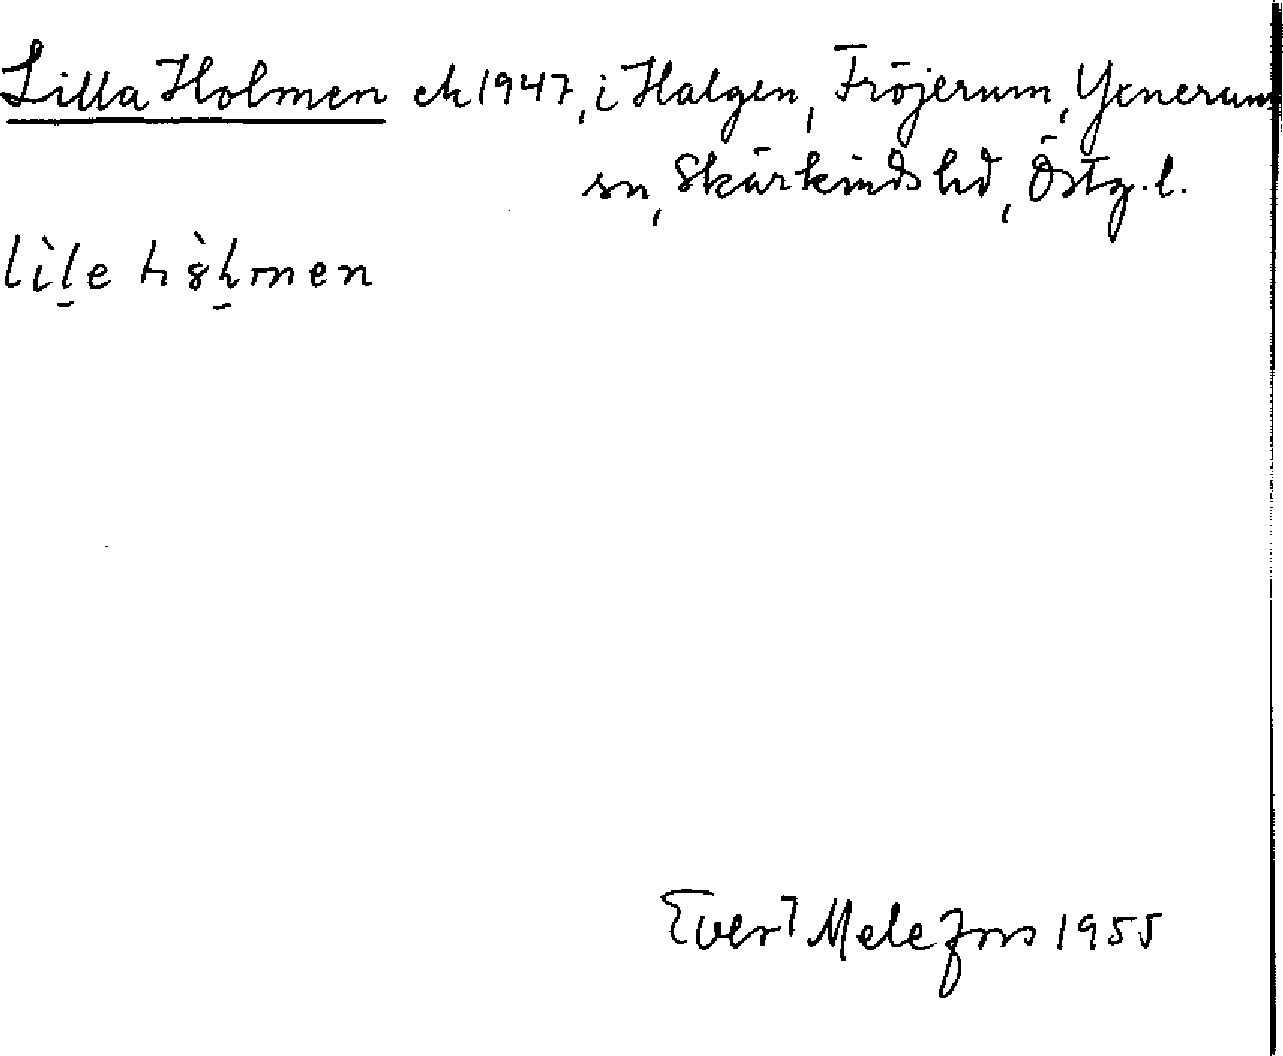 Lilla Holmen ek 1947, i Halgen, Fröjerum, Yxnerum
sn, Skärkinds hd, Östg. l.
Evert Melefors 1955